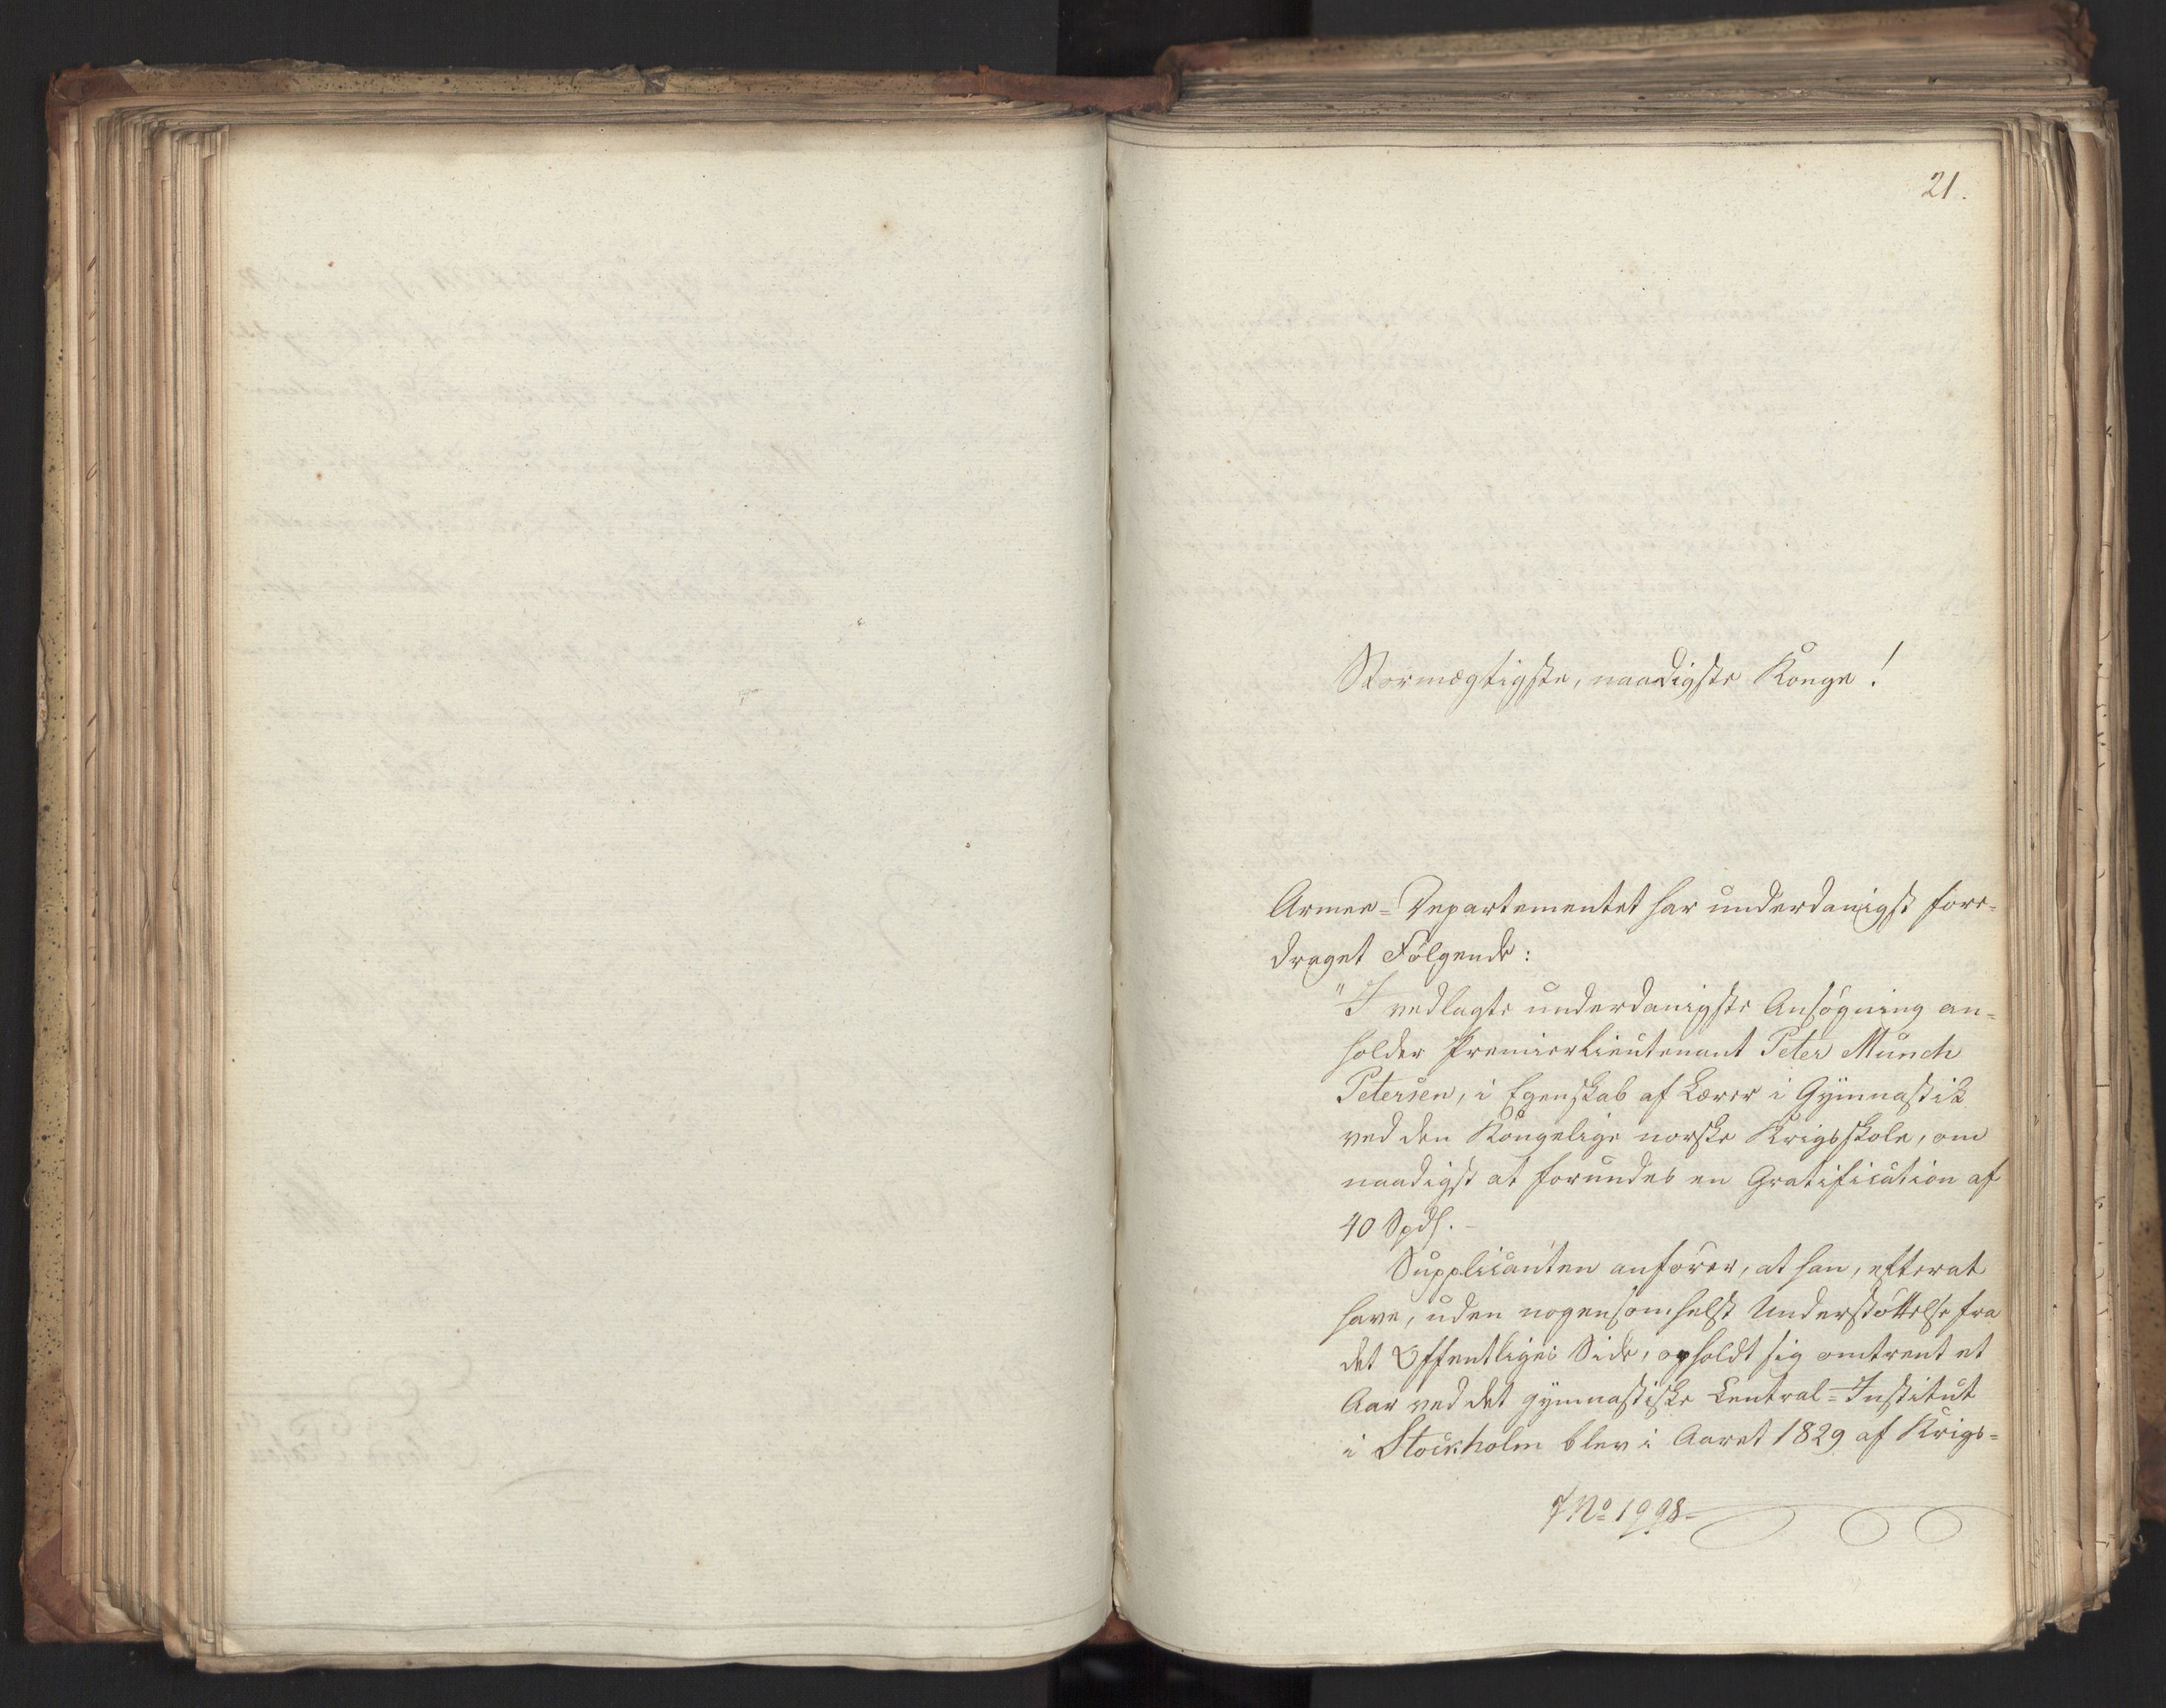 21.
Stormægtigste, naadigste Konge!
Armee-Departementet har underdanigst fore-
draget Følgende:
"I vedlagte underdanigste Ansøgning an-
holder Premierlieutenant Peter Munch
Petersen, i Egenskab af Lærer i Gymnastik
ved den Kongelige norske Krigsskole, om
naadigst at forundes en Gratification af
40 Spds. -
Supplicanten anfører, at han, efterat
have, uden nogensomhelst Understøttelse fra
det Offentliges Side, opholdt sig omtrent et
Aar ved det gymnastiske Central-Institut
i Stockholm blev i Aaret 1829 af Krigs-
No 1998